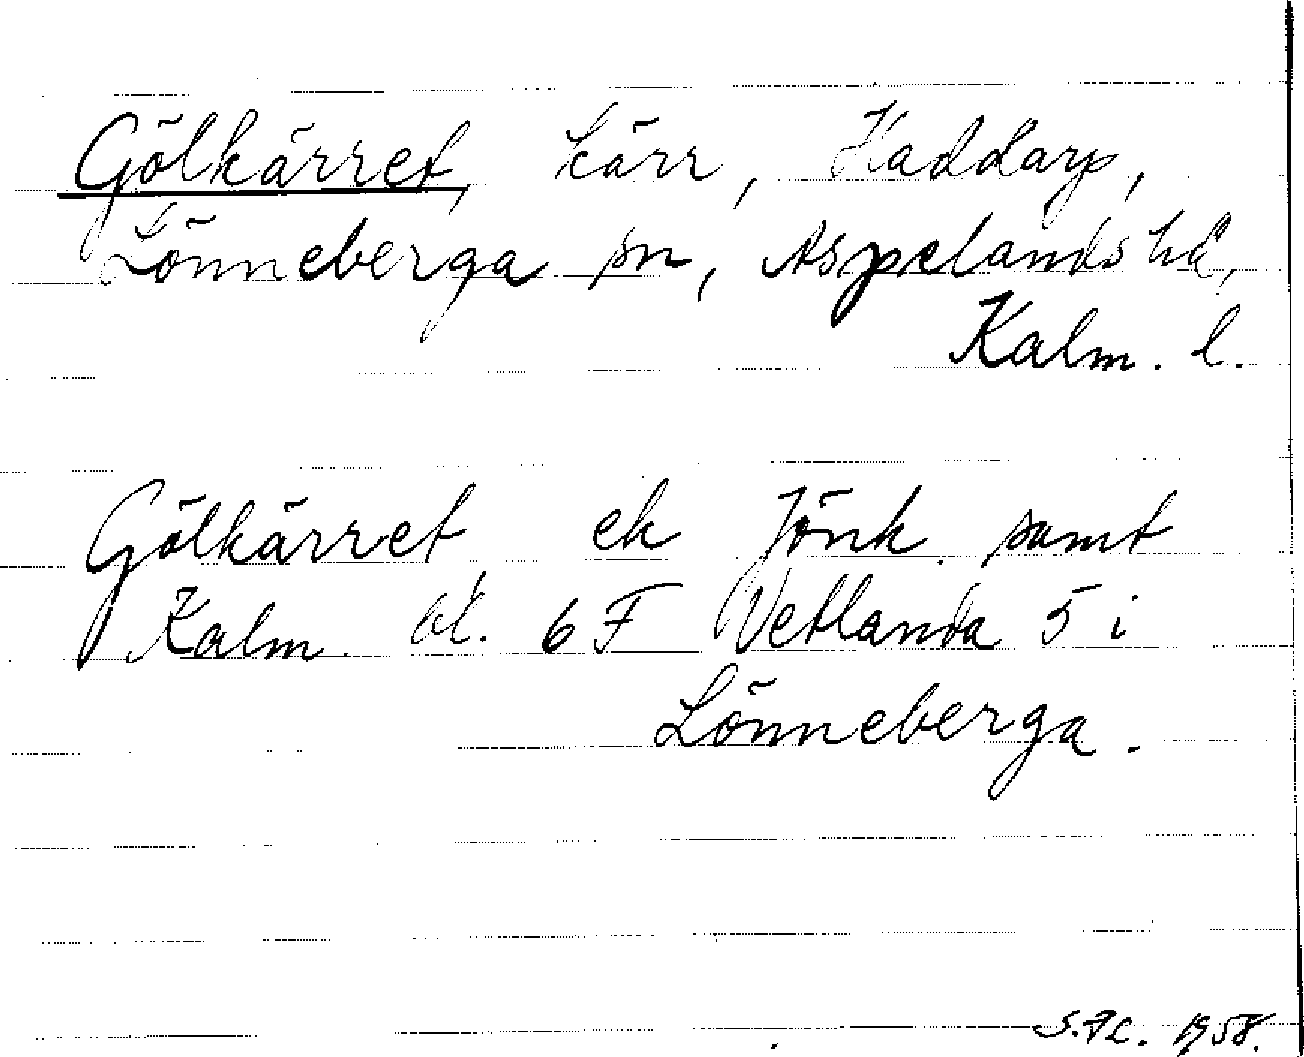 Gölkärret, kärr, Haddarp,
Lönneberga sn, Aspelands hd,
Kalm. l.
Gölkärret, ek Jönk. samt
Kalm. bl. 6 F Vetlanda 5 i
Lönneberga.
1958.